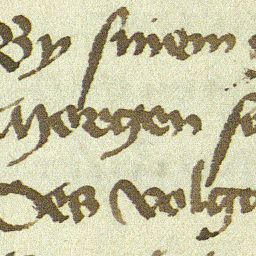 By sinem
Morgen se
Des volg